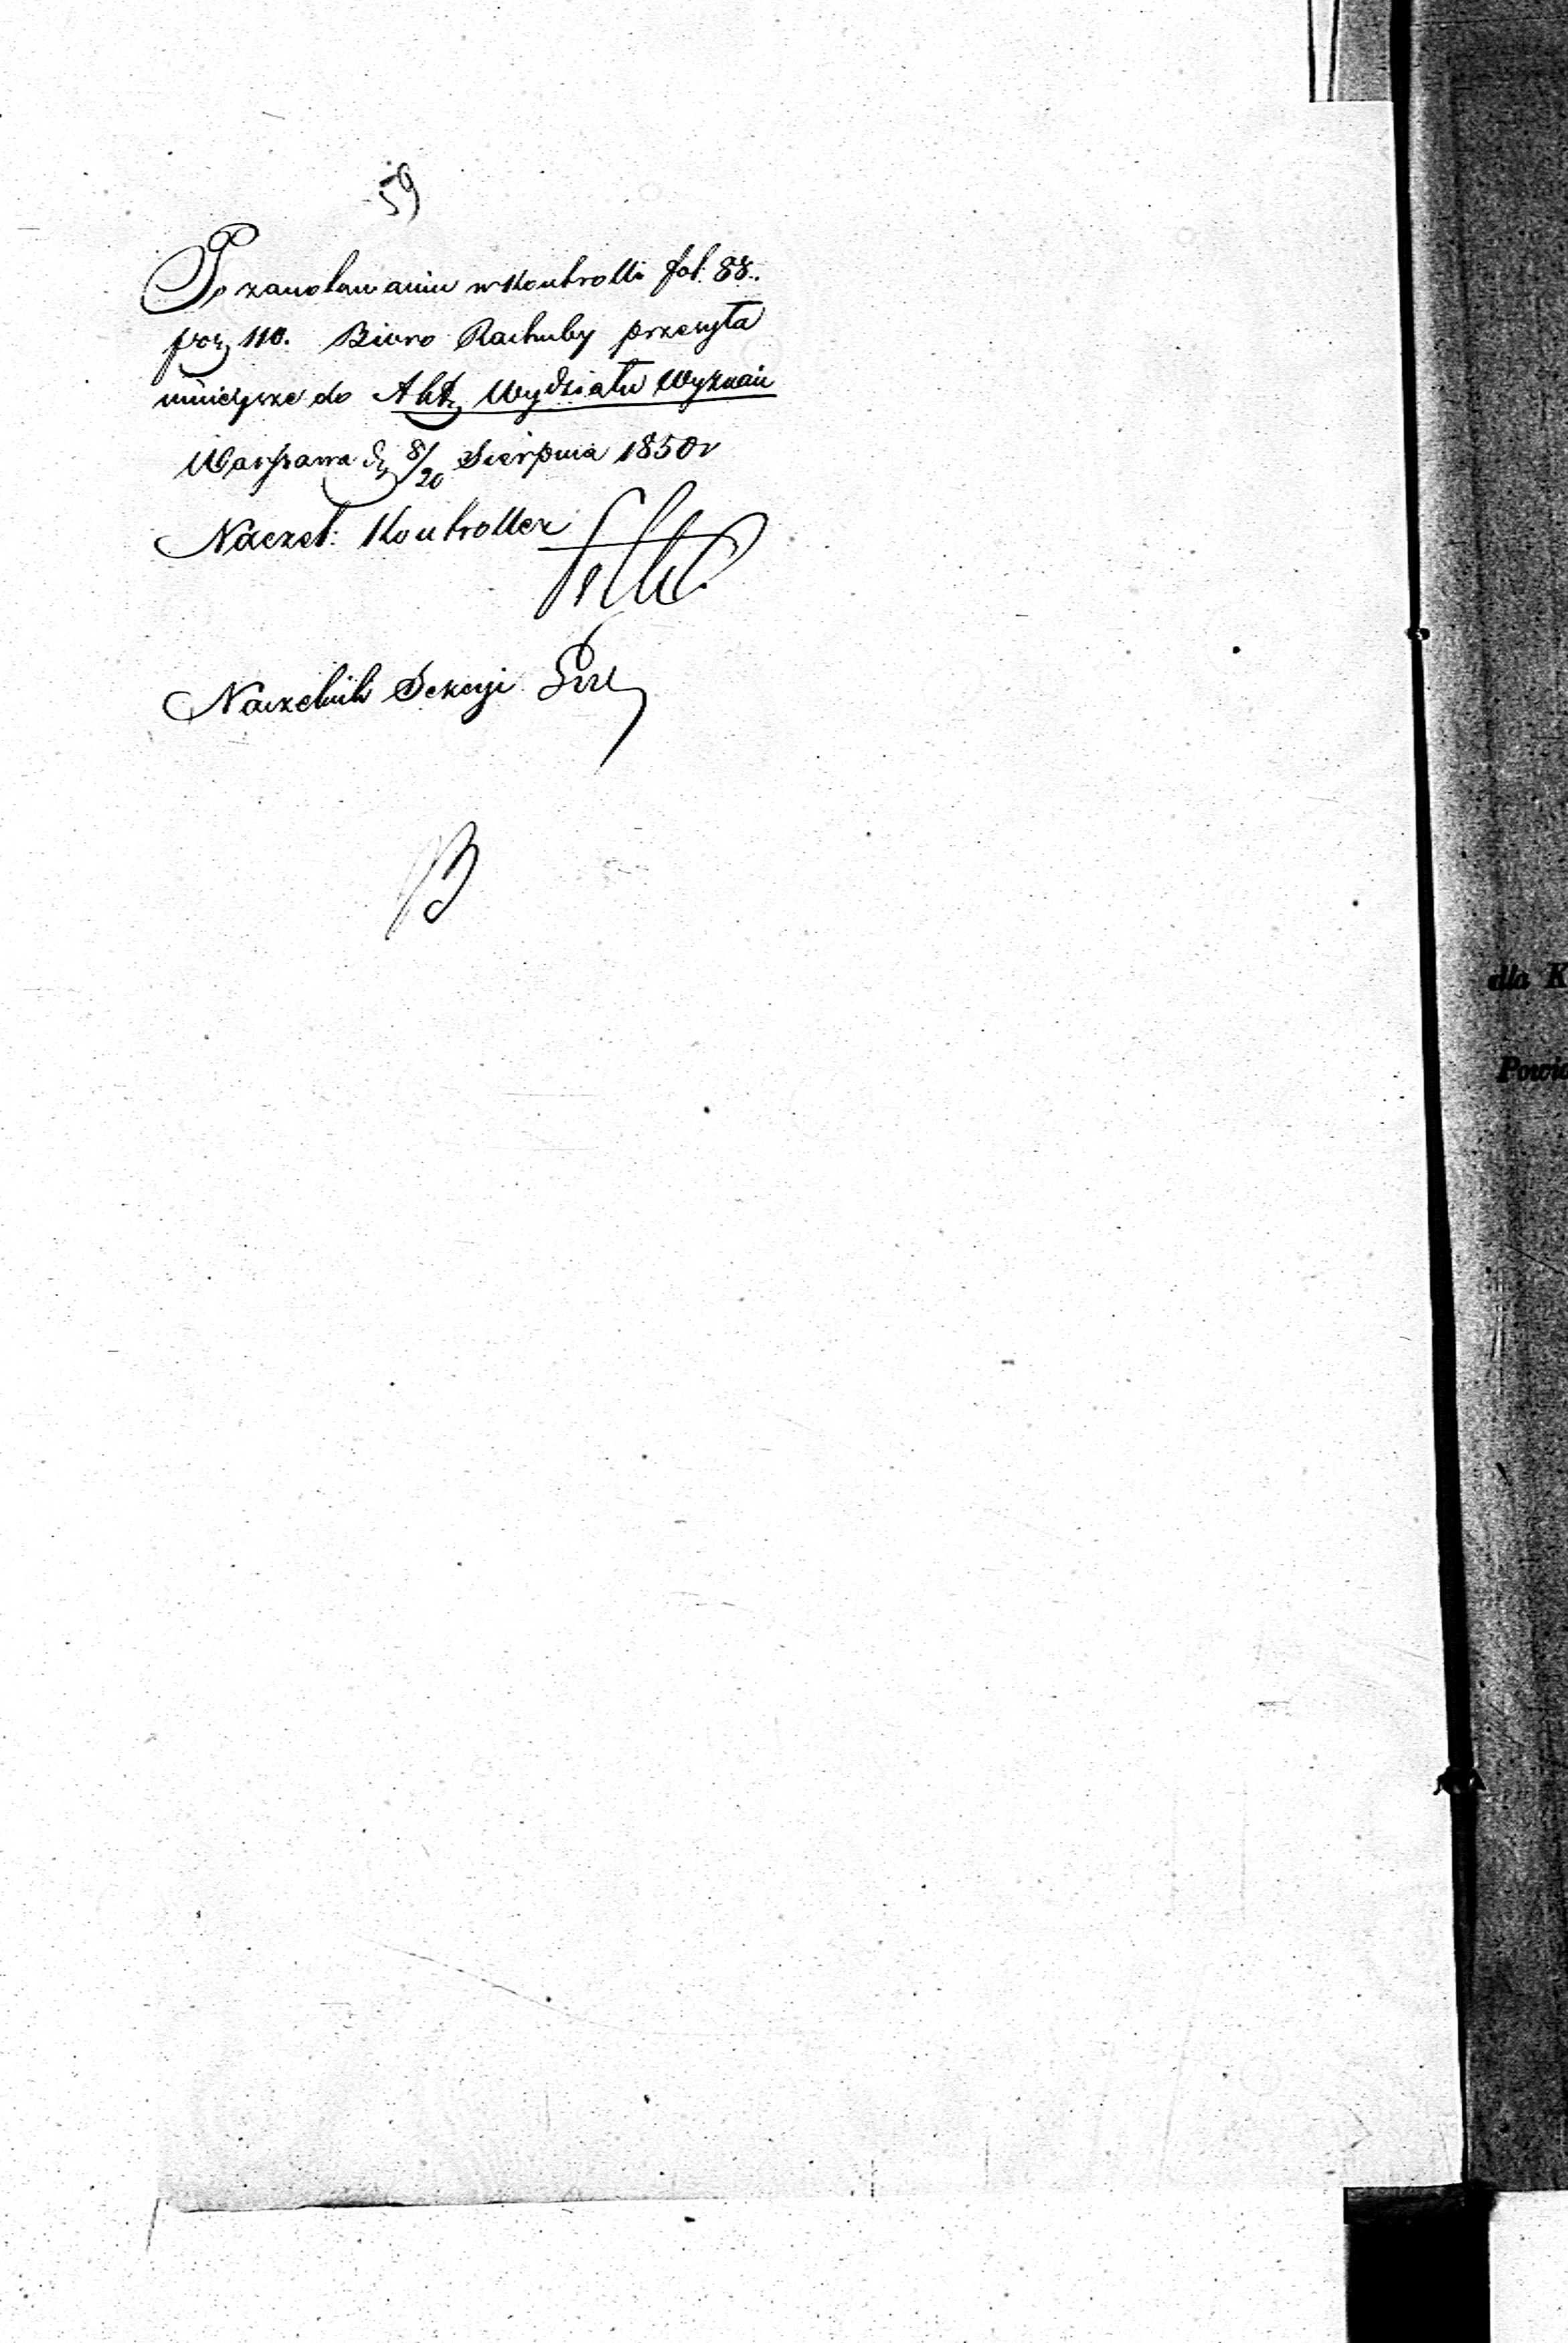 59
Po zanotowaniu w Kontrolli fol. 88.
poz 110. Biuro Rachuby przesyła
niniejsze do Akt Wydziału Wyznań
Warszawa d. 8/20 Sierpnia 1850 r
Naczel: Kontroller
Naczelnik Sekcyi
B
dla K
Powia